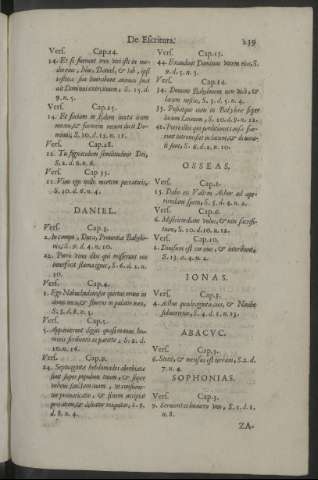 De Escritura. 239
Vers. Cap.14.
14. Et si fuerint tres viri isti in medio
eius, Noe, Daniel, & Iob, ipsi
iustitia sua liberabunt animas suas
ait Dominus exercituum, S. 15. d.
9. n. 5.
Vers. Cap.25.
14. Et faciant in Edom iuxta iram
meam, & furorem meum dicit Dominus,
S. 10. d. 12. n. 18.
Vers. Cap.28.
12. Tu signaculum similitudinis Dei,
S. 2. d. 8. n. 6.
Vers. Cap.33.
11. Vivo ego nolo mortem peccatoris,
S. 10. d. 6. n. 4.
DANIEL.
Vers. Cap.3.
1. In campo, Dura, Provintiæ Babylonis,
S. 8. d. 4. n. 10.
22. Porro viros illos qui miserant
interfecit flamma ignis, S. 6. d. 2. n.
10.
Vers. Cap.4.
1. Ego Nabuchodonosor quietus eram in
domo mea, & florens in palatio meo,
S. 5. d. 8. n. 3.
Vers. Cap.5.
5. Apparuerunt digiti quasi manus hominis
scribentis in pariete, S. 2. d.
10. n. 16.
Vers. Cap.9.
24. Septuaginta hebdomades abreviatæ
sunt super populum tuum, & super
urbem sanctam tuam, ut consummetur
prævaricatio, & finem accipiat
peccatum, & deleatur iniquitas, S. 8.
d. 8. n. 4.
Vers. Cap.13.
44. Exaudivit Dominus vocem eius, S.
9. d. 5. n. 3.
Vers. Cap.14.
34. Domine Babylonem non vidi, &
lacum nescio, S. 3. d. 5. n. 4.
35. Posuitque eum in Babylone super
lacum Leonum, S. 10. d. 9. n. 12.
42. Porro illos qui perditionis causa fuerant
intromisit in lacum, & devorati
sunt, S. 2. d. 2. n. 10.
OSSEAS.
Vers. Cap.2.
15. Dabo ei Vallem Achor ad aperiendam
spem, S. 5. d. 2. n. 2.
Vers. Cap.6.
6. Misericordiam volui, & non sacrificium,
S. 10. d. 10. n. 12.
Vers. Cap.10.
2. Divisum est cor eius, & interibunt,
S. 13. d. 4. n. 2.
IONAS.
Vers. Cap.3.
4. Adhuc quadraginta dies, & Ninive
subvertetur, S. 4. d. 1. n. 13.
ABACVC.
Vers. Cap.3.
6. Stetit, & mensus est terram, S. 2. d.
7. n. 4.
SOPHONIAS.
Vers. Cap.3.
9. Serviant ei humero uno, S. 1. d. 1.
n. 8.
ZA-